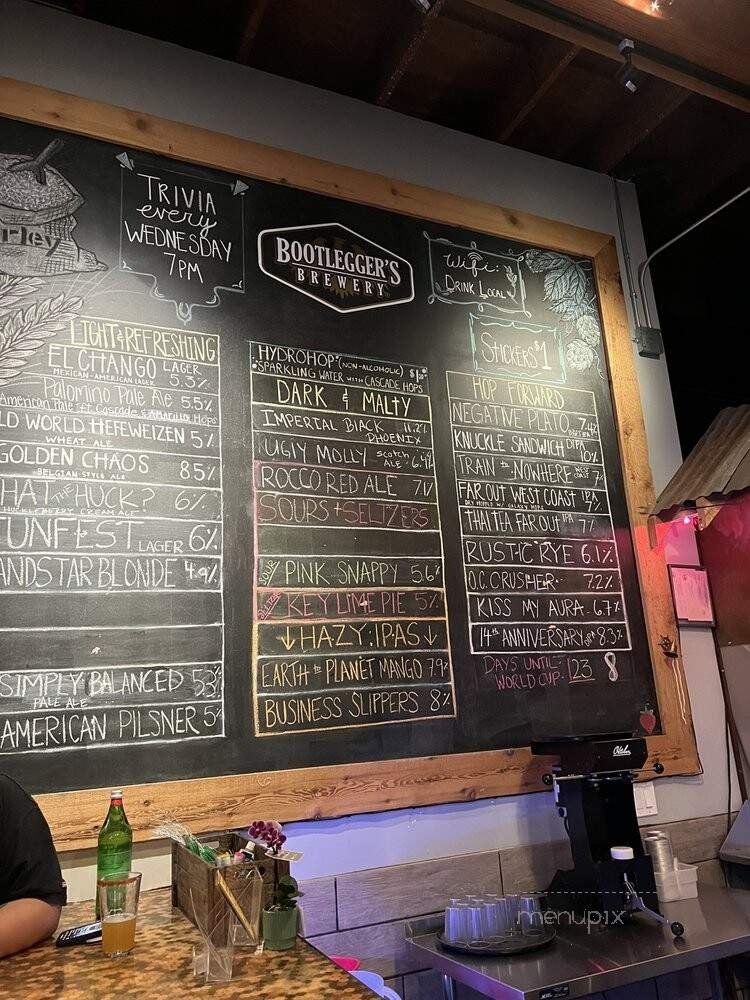 rley
TRIVIA
every
WEDNESDAY
7PM
BOOTLEGGER'S
BREWERY
Wifi:
DRINK LOCAL
STICKERS $1
LIGHT & REFRESHING
EL CHANGO LAGER
MEXICAN-AMERICAN LAGER 5.3%
Palomino Pale Ale 5.5%
American Pale ft. Cascade & Amarillo Hops
LD WORLD HEFEWEIZEN 5%
WHEAT ALE
GOLDEN CHAOS 8.5%
BELGIAN STYLE ALE
HAT THE HUCK? 6%
HUCKLEBERRY CREAM ALE
FUNFEST LAGER 6%
ANDSTAR BLONDE 4.9%
SIMPLY BALANCED
PALE ALE
AMERICAN PILSNER 5%
HYDROHOP (NON-ALCOHOLIC)
SPARKLING WATER WITH CASCADE HOPS
DARK & MALTY
IMPERIAL BLACK PHOENIX 11.2%
UGLY MOLLY SCOTCH ALE 6.4%
ROCCO RED ALE 7%
SOURS + SELTZERS
SOUR PINK SNAPPY 5.6%
SELTZER KEY LIME PIE 5%
↓HAZY IPAS↓
EARTH to PLANET MANGO 7.9%
BUSINESS SLIPPERS 8%
HOP FORWARD
NEGATIVE PLATO 7.4%
KNUCKLE SANDWICH DIPA 10%
TRAIN to NOWHERE WEST COAST 7%
FAR OUT WEST COAST IPA 7%
DRY HOPPED W/ GALAXY HOPS
THAI TEA FAR OUT IPA 7%
RUSTIC RYE 6.1%
O.C. CRUSHER 7.2%
KISS MY AURA 6.7%
14th ANNIVERSARY 8.3%
DAYS UNTIL
WORLD CUP: 123
menupix